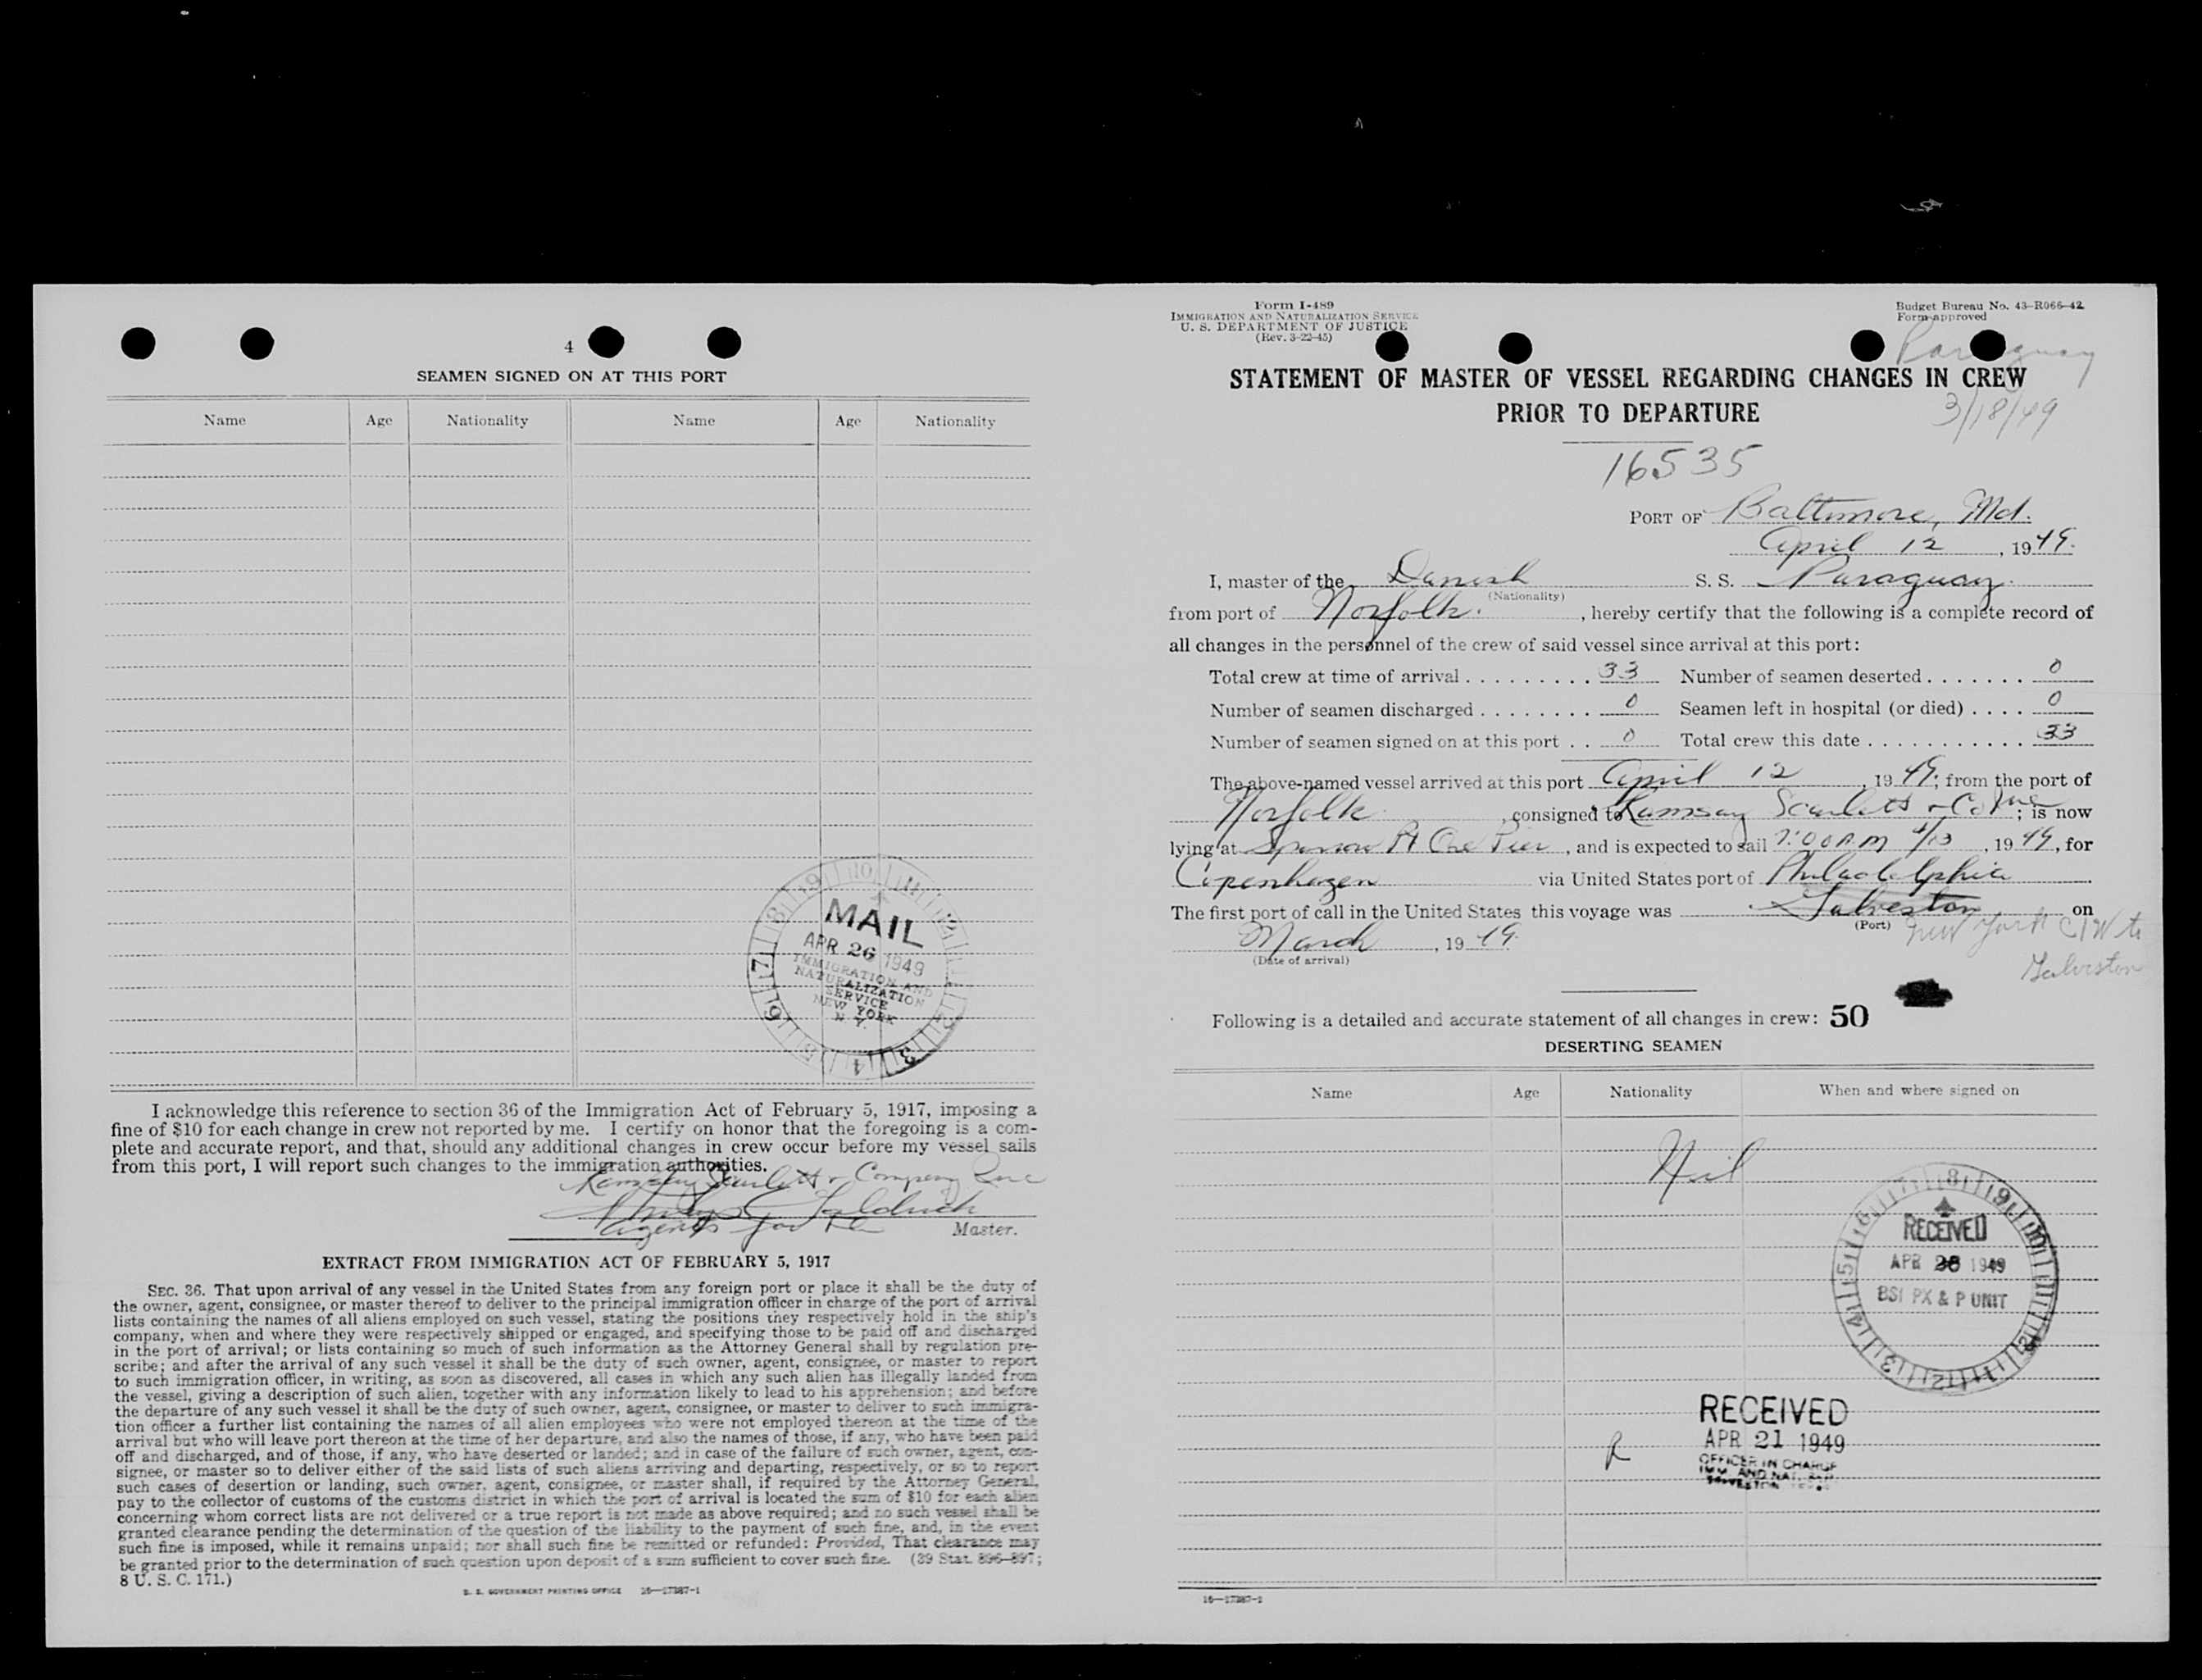 4
SEAMEN SIGNED ON AT THIS PORT
Name Age Nationality Name Age Nationality
MAIL
APR 26 1949
IMMIGRATION AND
NATURALIZATION
SERVICE
NEW YORK
N. Y.
I acknowledge this reference to section 36 of the Immigration Act of February 5, 1917, imposing a
fine of $10 for each change in crew not reported by me. I certify on honor that the foregoing is a com-
plete and accurate report, and that, should any additional changes in crew occur before my vessel sails
from this port, I will report such changes to the immigration authorities.
Ramsay Scarlett & Company Inc
agents for the Master.
EXTRACT FROM IMMIGRATION ACT OF FEBRUARY 5, 1917
SEC. 36. That upon arrival of any vessel in the United States from any foreign port or place it shall be the duty of
the owner, agent, consignee, or master thereof to deliver to the principal immigration officer in charge of the port of arrival
lists containing the names of all aliens employed on such vessel, stating the positions they respectively hold in the ship's
company, when and where they were respectively shipped or engaged, and specifying those to be paid off and discharged
in the port of arrival; or lists containing so much of such information as the Attorney General shall by regulation pre-
scribe; and after the arrival of any such vessel it shall be the duty of such owner, agent, consignee, or master to report
to such immigration officer, in writing, as soon as discovered, all cases in which any such alien has illegally landed from
the vessel, giving a description of such alien, together with any information likely to lead to his apprehension; and before
the departure of any such vessel it shall be the duty of such owner, agent, consignee, or master to deliver to such immigra-
tion officer a further list containing the names of all alien employees who were not employed thereon at the time of the
arrival but who will leave port thereon at the time of her departure, and also the names of those, if any, who have been paid
off and discharged, and of those, if any, who have deserted or landed; and in case of the failure of such owner, agent, con-
signee, or master so to deliver either of the said lists of such aliens arriving and departing, respectively, or so to report
such cases of desertion or landing, such owner, agent, consignee, or master shall, if required by the Attorney General,
pay to the collector of customs of the customs district in which the port of arrival is located the sum of $10 for each alien
concerning whom correct lists are not delivered or a true report is not made as above required; and no such vessel shall be
granted clearance pending the determination of the question of the liability to the payment of such fine, and, in the event
such fine is imposed, while it remains unpaid; nor shall such fine be remitted or refunded: Provided, That clearance may
be granted prior to the determination of such question upon deposit of a sum sufficient to cover such fine. (39 Stat. 896–897;
8 U. S. C. 171.)
U. S. GOVERNMENT PRINTING OFFICE 16—27387-1
Form I-489
IMMIGRATION AND NATURALIZATION SERVICE
U. S. DEPARTMENT OF JUSTICE
(Rev. 3-22-45)
Budget Bureau No. 43-R066-42
Form approved
Paraguay
STATEMENT OF MASTER OF VESSEL REGARDING CHANGES IN CREW
PRIOR TO DEPARTURE
3/18/49
16535
PORT OF Baltimore, Md.
April 12, 1949.
I, master of the Danish S. S. Paraguay
(Nationality)
from port of Norfolk, hereby certify that the following is a complete record of
all changes in the personnel of the crew of said vessel since arrival at this port:
Total crew at time of arrival 33 Number of seamen deserted 0
Number of seamen discharged 0 Seamen left in hospital (or died) 0
Number of seamen signed on at this port 0 Total crew this date 33
The above-named vessel arrived at this port April 12, 1949; from the port of
Norfolk, consigned to Ramsay Scarlett & Co Inc; is now
lying at Sparrow Pt Ore Pier, and is expected to sail 7:00 AM 4/13, 1949, for
Copenhagen via United States port of Philadelphia
The first port of call in the United States this voyage was Galveston on
(Port)
New York
March, 1949.
(Date of arrival)
Galveston
Following is a detailed and accurate statement of all changes in crew: 50
DESERTING SEAMEN
Name Age Nationality When and where signed on
Nil
RECEIVED
APR 1949
BSI PX & P UNIT
RECEIVED
APR 21 1949
OFFICER IN CHARGE
R
16—27387-1